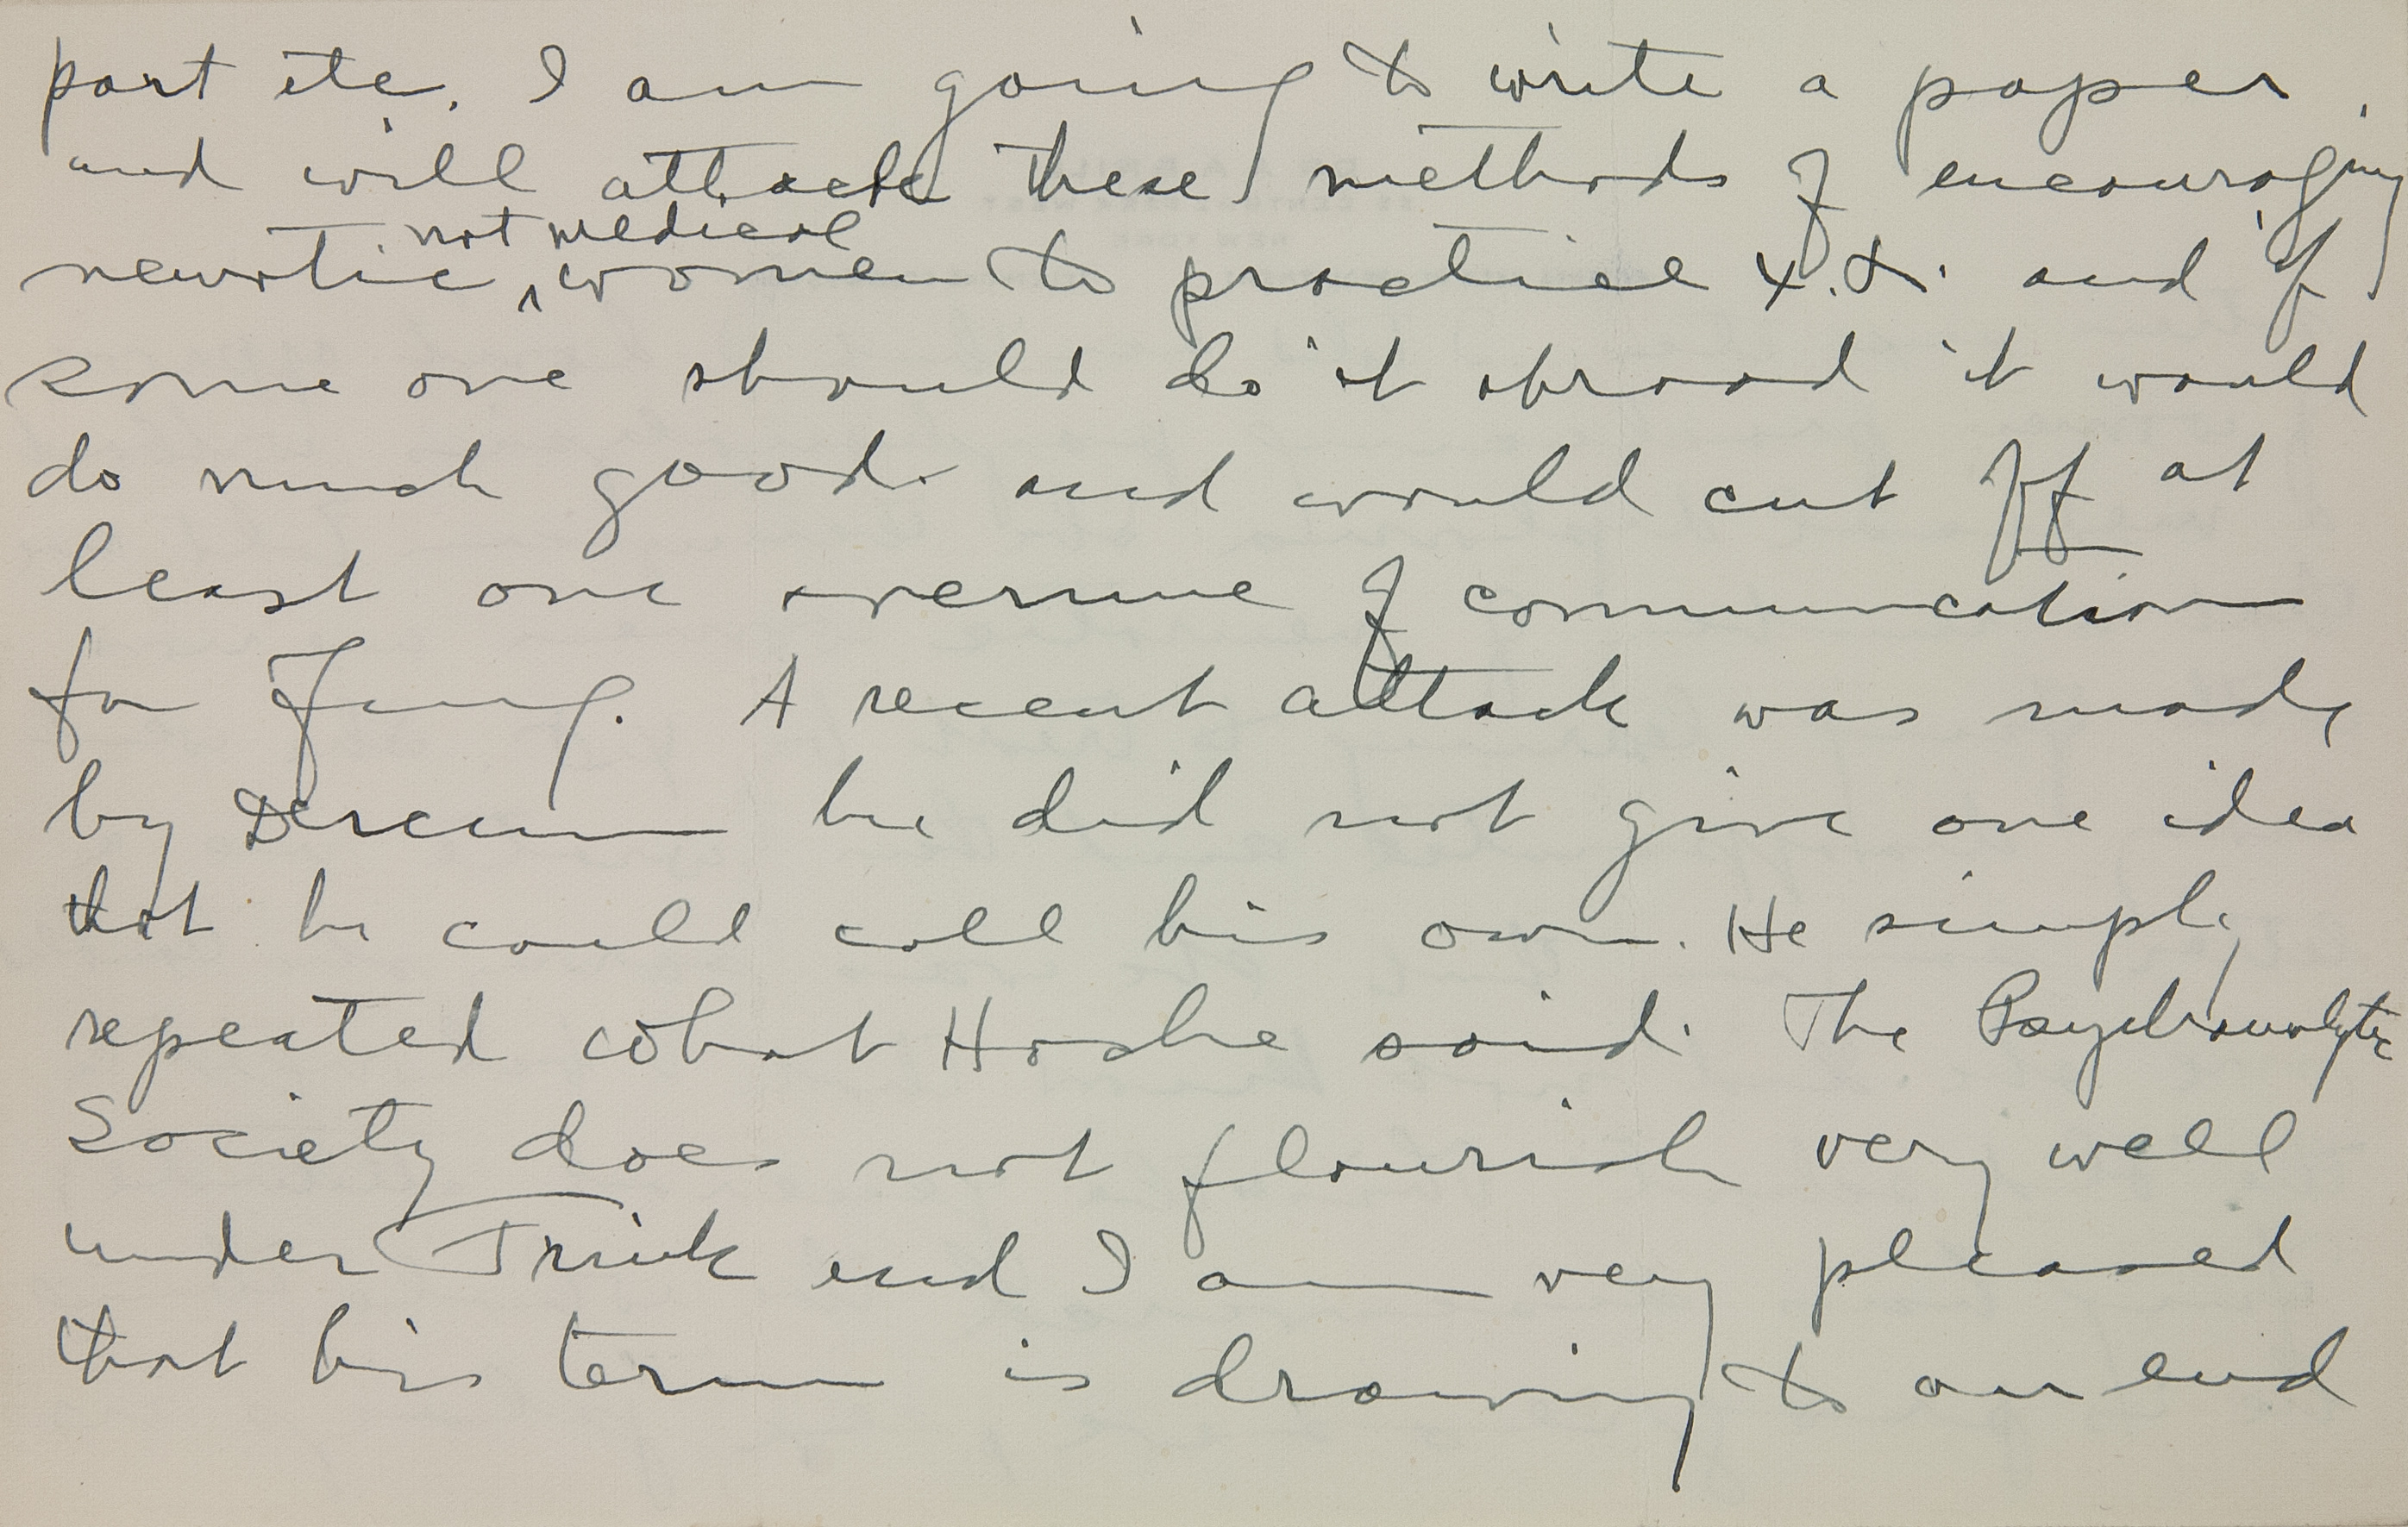 part etc. I am going to write a paper,
and will attack these methods of encouraging
not medical
neurotic ‸ women to practice ψ.α. and if
some one should do it abroad it would
do much good. and would cut off at
least one avenue of communication
for Jung. A recent attack was made
by Dercum he did not give one idea
that he could call his own. He simply
repeated what Hoche said. The Psychoanalytic
Society does not flourish very well
under Frink and I am very pleased
that his term is drawing to an end